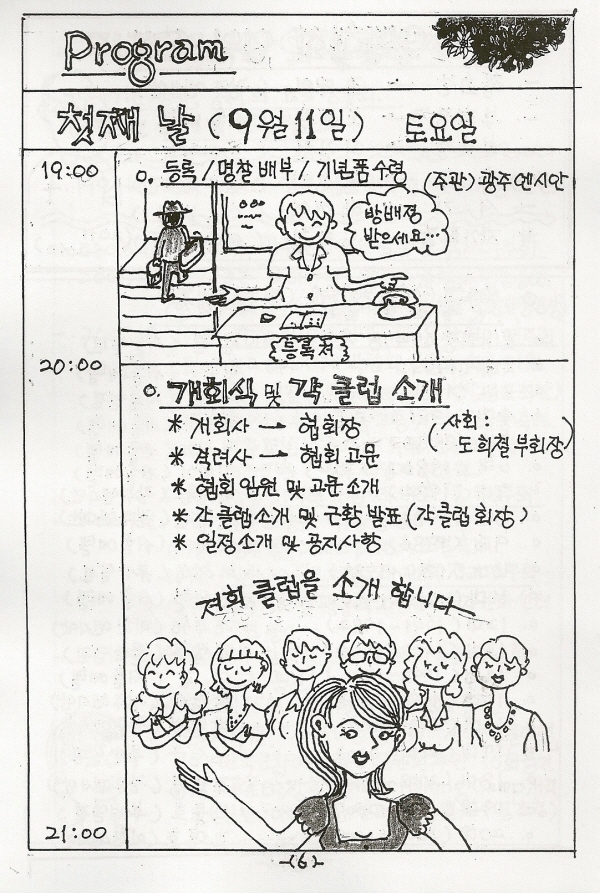 Program
첫째 날 (9월11일) 토요일
19:00
o. 등록/명찰 배부/기념품 수령 (주관) 광주 엔시안
방배정
받으세요...
등록처
20:00
o. 개회식 및 각 클럽 소개
(사회:
도희철 부회장)
* 개회사 → 협회장
* 격려사 → 협회 고문
* 협회 임원 및 고문 소개
* 각 클럽소개 및 근황 발표 (각 클럽 회장)
* 일정소개 및 공지사항
저희 클럽을 소개 합니다
21:00
-(6)-